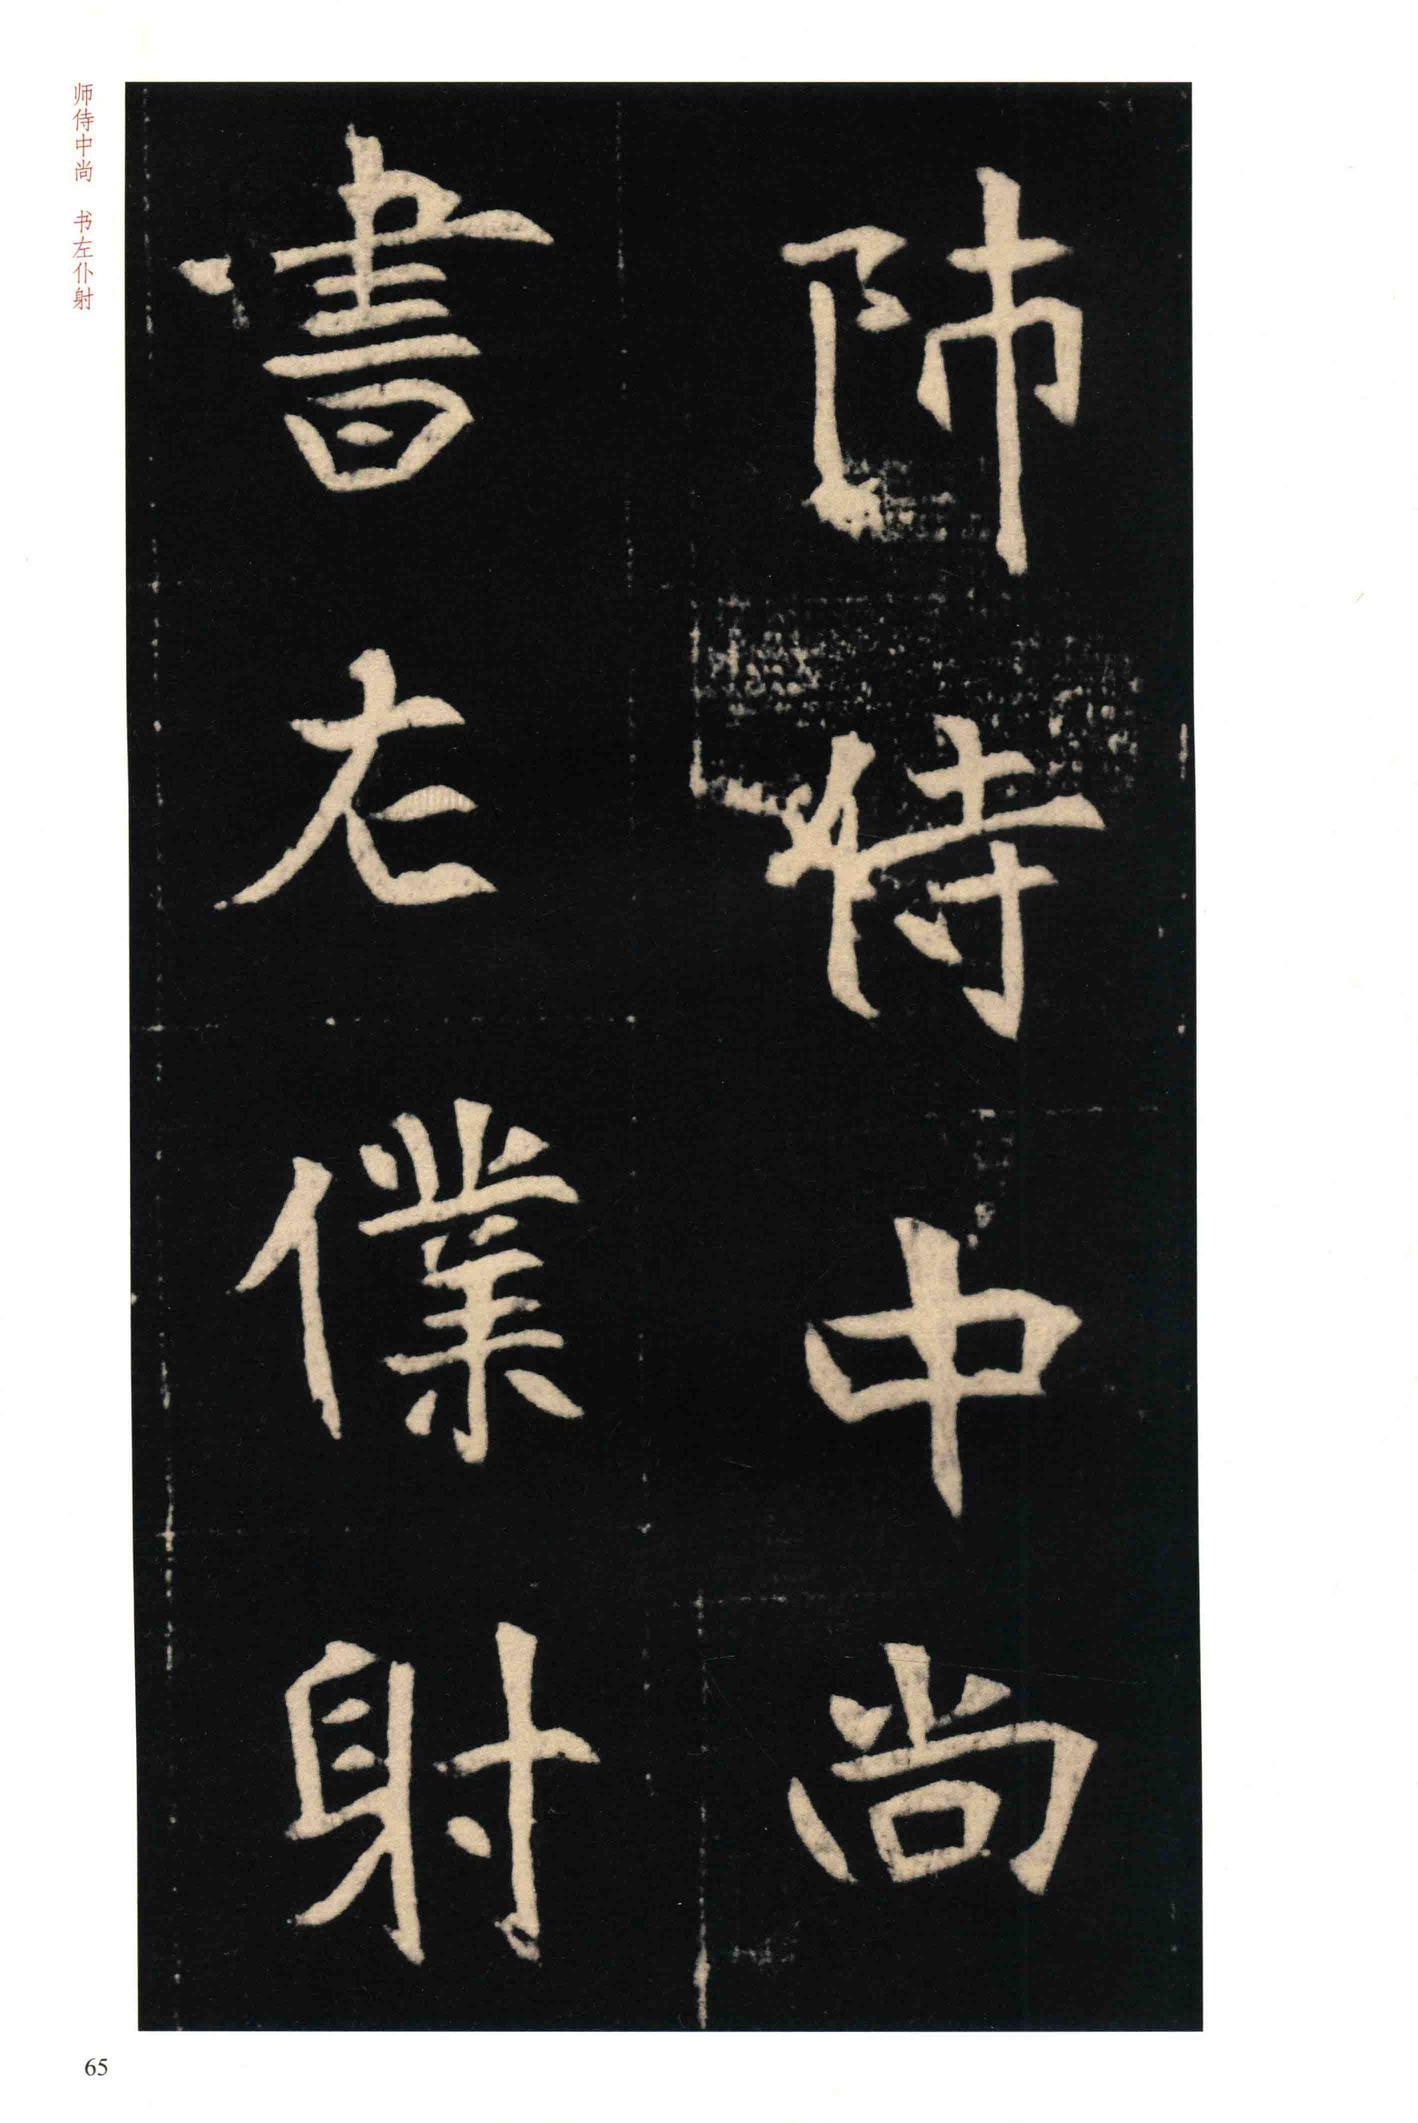 师侍中尚 书左仆射
師侍中尚
書左僕射
65